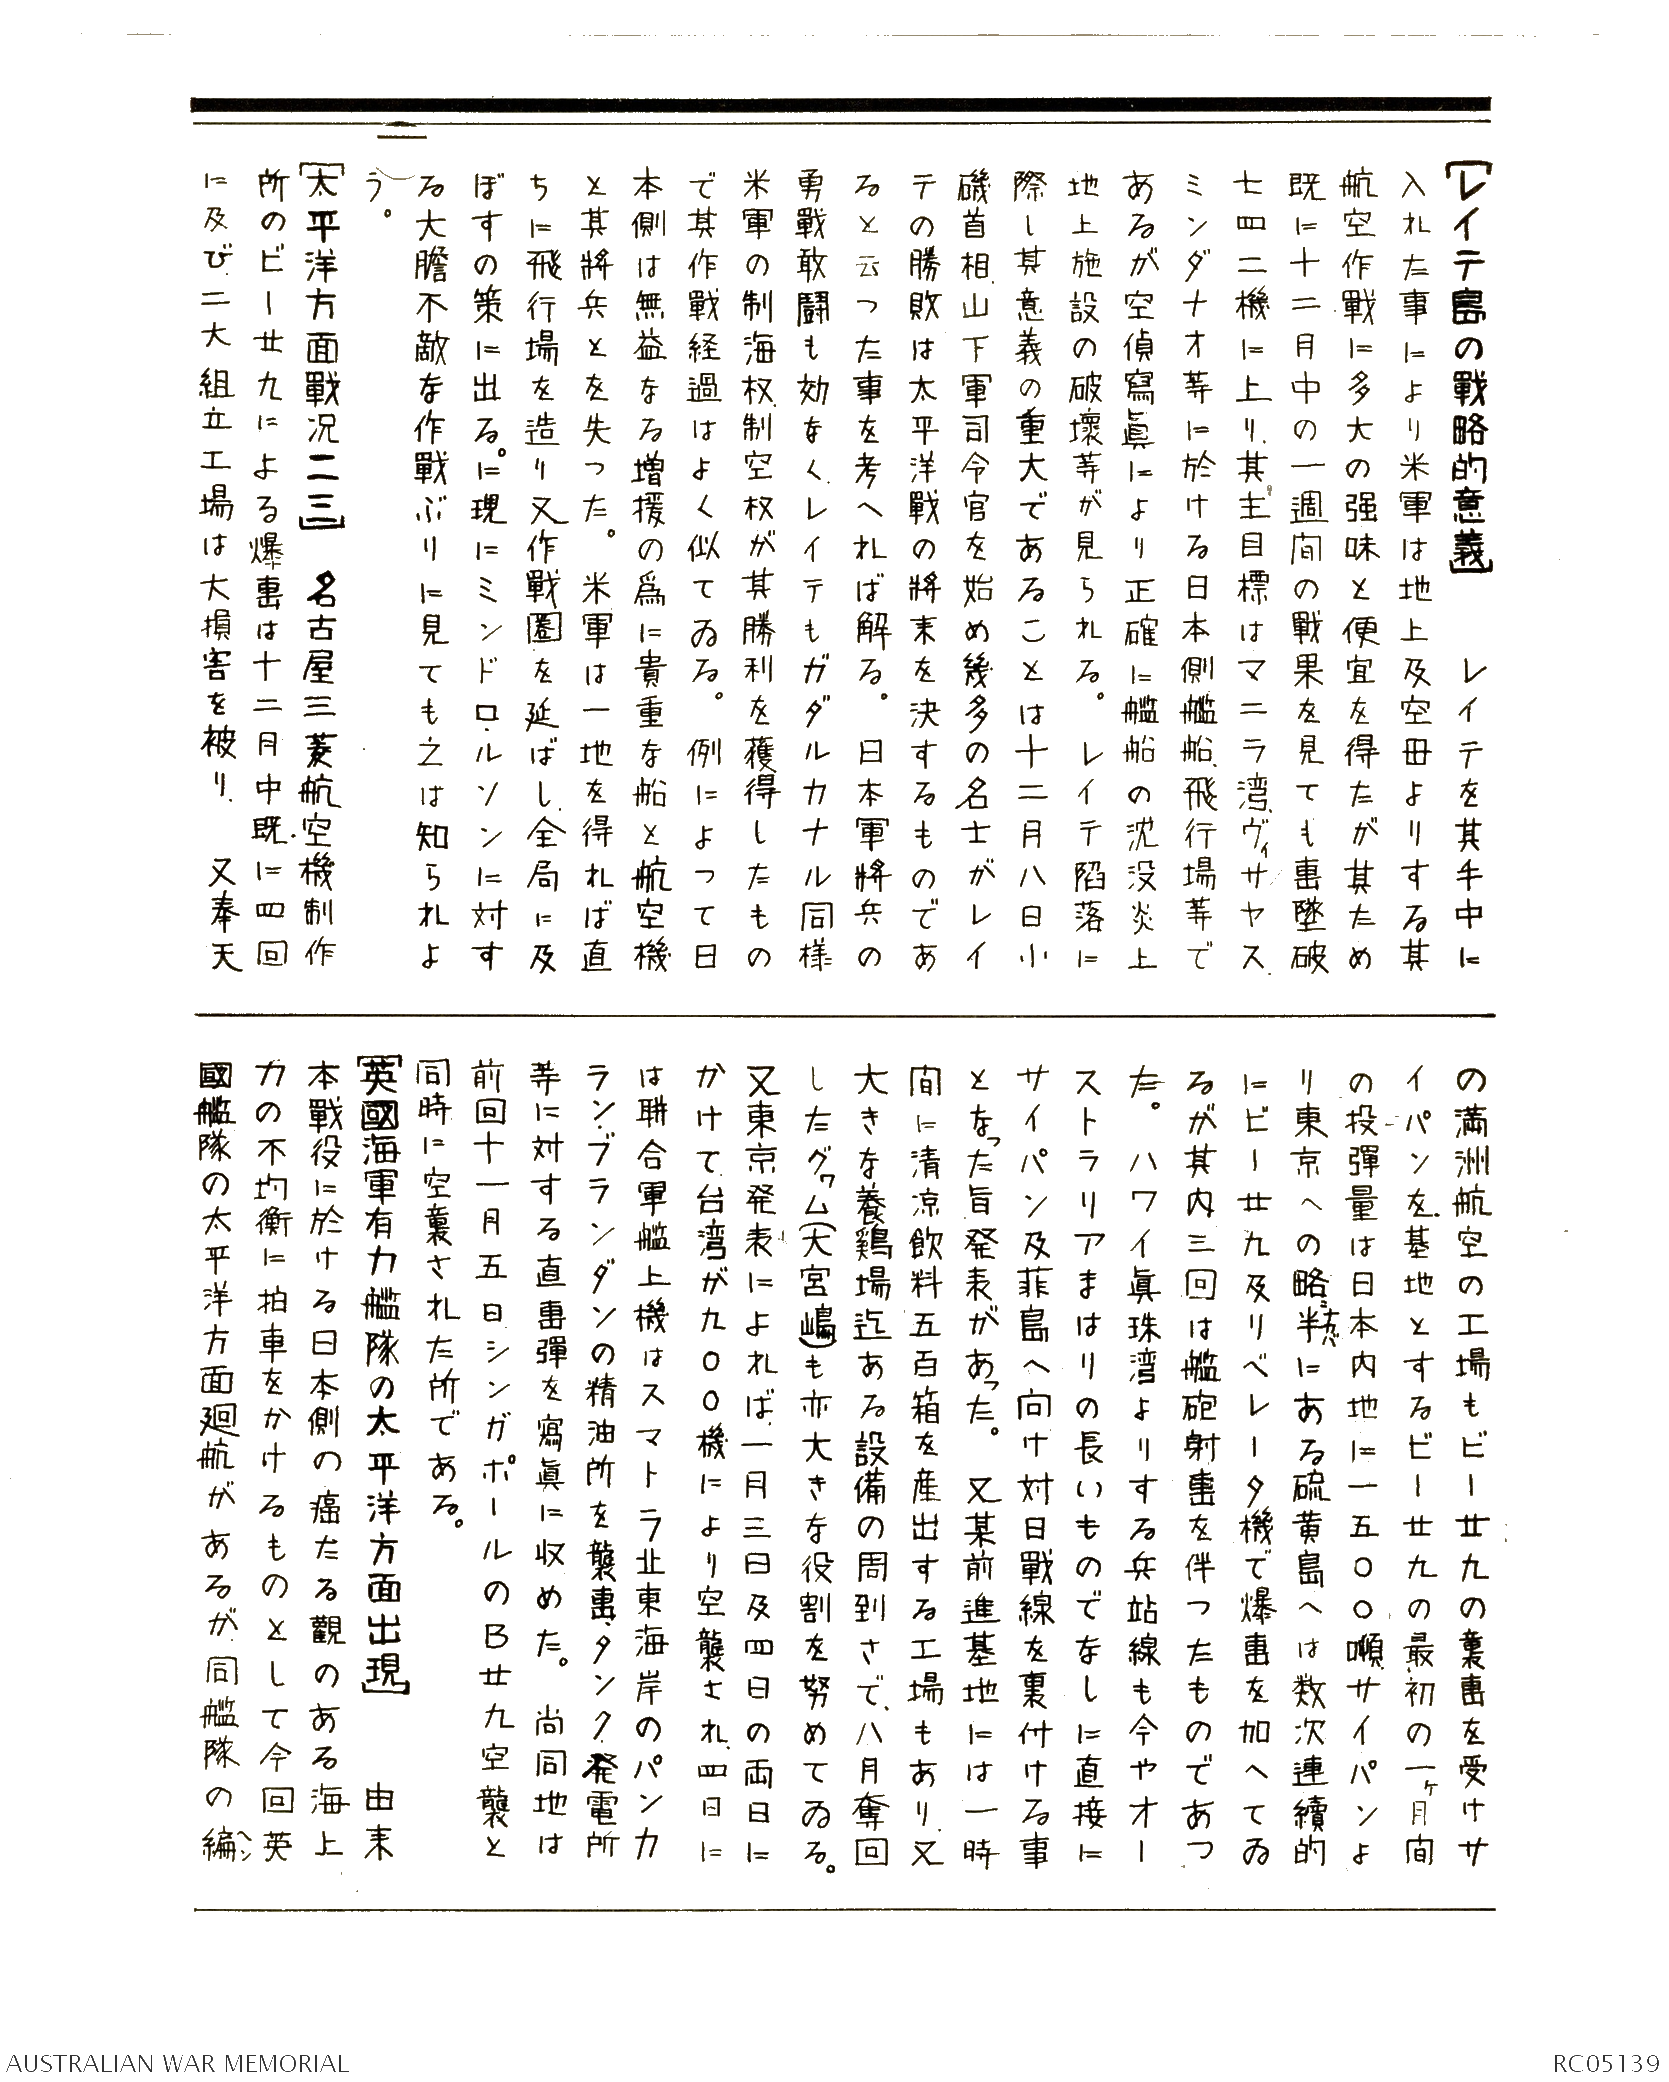 [レイテ島の戰略的意義]　レイテを其手中に
入れた事により米軍は地上及空母よりする其
航空作戰に多大の强味と便宜を得たが其ため
既に十二月中の一週间の戰果を見ても擊墜破
七四二機に上り、其主目標はマニラ湾、ヴィサヤス、
ミンダナオ等に於ける日本側艦船、飛行場等で
あるが空偵寫眞により正確に艦船の沈没炎上
地上施設の破壞等が見られる。レイテ陷落に
際し其意義の重大であることは十二月八日小
磯首相、山下軍司令官を始め幾多の名士がレイ
テの勝敗は太平洋戰の將来を決するものであ
ると云つた事を考へれば解る。日本軍將兵の
勇戰敢闘も効なく、レイテもガダルカナル同様
米軍の制海权、制空权が其勝利を獲得したもの
で其作戰経過はよく似てゐる。例によつて日
本側は無益なる増援の爲に貴重な船と航空機
と其將兵とを失つた。米軍は一地を得れば直
ちに飛行場を造り又作戰圏を延ばし、全局に及
ぼすの策に出る。に現にミンドロ、ルソンに対す
る大膽不敵な作戰ぶりに見ても之は知られよ
う。
[太平洋方面戰况二三]　名古屋三菱航空機制作
所のビー廿九による爆擊は十二月中既に四回
に及び、二大組立工場は大損害を被り、又奉天
の満洲航空の工場もビー廿九の襲擊を受けサ
イパンを基地とするビー廿九の最初の一ヶ月间
の投彈量は日本内地に一五〇〇噸、サイパンよ
り東京への略半ナカバにある硫黄島へは数次連續的
にビー廿九及リベレータ機で爆擊を加へてゐ
るが其内三回は艦砲射擊を伴つたものであつ
た。ハワイ眞珠湾よりする兵站線も今やオー
ストラリアまはりの長いものでなしに直接に
サイパン及菲島へ向け対日戰線を裏付ける事
となった旨発表があった。又某前進基地には一時
间に清凉飲料五百箱を産出する工場もあり、又
大きな養鷄場迄ある設備の周到さで、八月奪回
したグヮム(大宮嶋)も亦大きな役割を努めてゐる。
又東京発表によれば、一月三日及四日の両日に
かけて、台湾が九〇〇機により空襲され、四日に
は聯合軍艦上機はスマトラ北東海岸のパンカ
ラン・ブランダンの精油所を襲擊、タンク、発電所
等に対する直擊彈を寫眞に収めた。尚同地は
前回十一月五日シンガポールのB廿九空襲と
同時に空襲された所である。
[英國海軍有力艦隊の太平洋方面出現]　由来
本戰役に於ける日本側の癌たる觀のある海上
力の不均衡に拍車をかけるものとして今回英
國艦隊の太平洋方面廻航があるが、同艦隊の編ヘン
AUSTRALIAN WAR MEMORIAL
RC05139